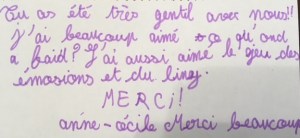 Tu as été très gentil avec nous!!
j'ai beaucoup aimé ce qu'ond
a baid? J'ai aussi aimé le jeu des
émosions et du ling.
MERCi!
anne-cécile Merci beaucoup